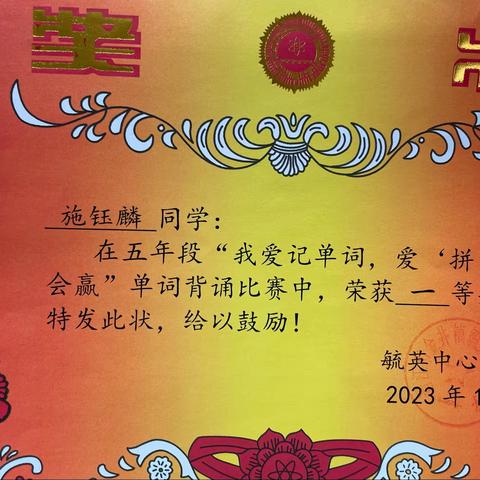 奖
施钰麟 同学：
在五年段“我爱记单词，爱‘拼
会赢”单词背诵比赛中，荣获 一 等
特发此状，给以鼓励！
毓英中心
2023 年 1